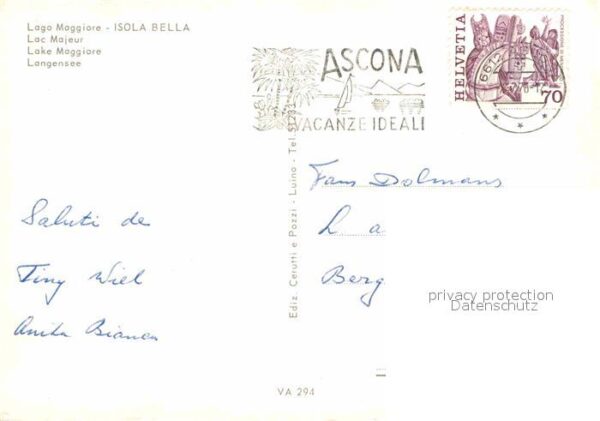 Lago Maggiore - ISOLA BELLA
Lac Majeur
Lake Maggiore
Langensee
ASCONA
VACANZE IDEALI
HELVETIA
70
6612
Saluti de
Tiny Wiel
Anita Bianca
Ediz. Cerutti e Pozzi - Luino - Tel. 51731
Fam Dolmans
L a
Berg
privacy protection
Datenschutz
VA 294